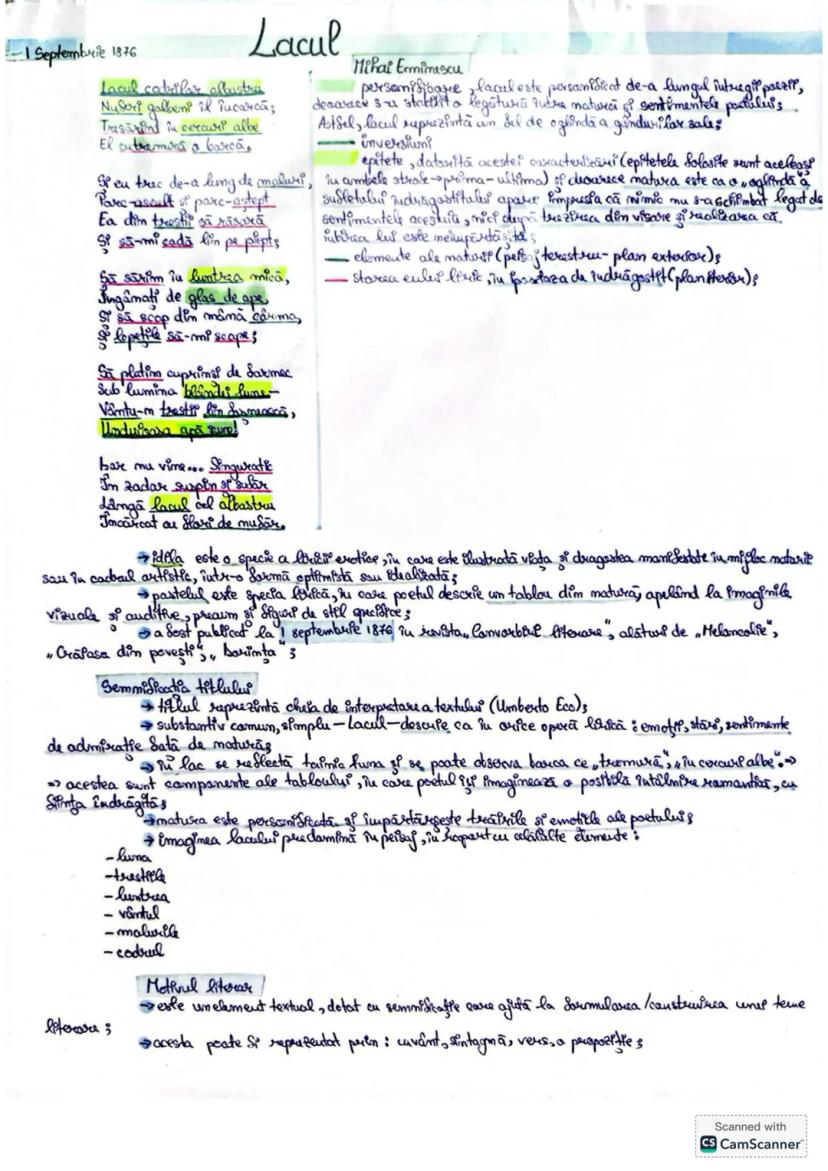 1 Septembrie 1876
Lacul
Mihai Eminescu
Lacul codrilor albastru
Nuferi galbeni îl încarcă;
Tresărind în cercuri albe
El cutremură o barcă.
Și eu trec de-a lung de maluri,
Parc-ascult și parc-aștept
Ea din trestii să răsară
Și să-mi cadă lin pe piept;
Să sărim în luntrea mică,
Îngânați de glas de ape,
Și să scap din mână cârma,
Și lopețile să-mi scape;
Să plutim cuprinși de farmec
Sub lumina blândei lune-
Vântu-n trestii lin foșnească,
Unduioasa apă sune!
Dar nu vine... Singuratic
În zadar suspin și sufăr
Lângă lacul cel albastru
Încărcat cu flori de nufăr.
personificare, lacul este personificat de-a lungul întregii poezii,
deoarece s-a stabilit o legătură între natură și sentimentele poetului;
Astfel, lacul reprezintă un fel de oglindă a gândurilor sale;
inversiuni
epitete, datorită acestei caracterizări (epitetele folosite sunt aceleași
în ambele strofe→prima-ultima) și deoarece natura este ca o „oglindă" a
sufletului îndrăgostitului apare impresia că nimic nu s-a schimbat legat de
sentimentele acestuia, nici după trezirea din visare și realizarea că
iubirea lui este neîmpărtășită;
elemente ale naturii (peisaj terestru-plan exterior);
starea eului liric, în ipostaza de îndrăgostit (plan interior);
→ idila este o specie a liricii erotice, în care este ilustrată viața și dragostea manifestate în mijloc naturii
sau în cadrul artistic, într-o formă optimistă sau idealizată;
→ pastelul este specia lirică, în care poetul descrie un tablou din natură, apelând la imaginile
vizuale și auditive, precum și figuri de stil specifice;
→ a fost publicat la 1 septembrie 1876 în revista „Convorbiri literare", alături de „Melancolie",
„Crăiasa din povești", „Dorința";
Semnificația titlului
→ titlul reprezintă cheia de interpretare a textului (Umberto Eco);
→ substantiv comun, simplu-Lacul-descrie ca în orice operă lirică: emoții, stări, sentimente
de admirație față de natură;
→ în lac se reflectă taina luna și se poate observa barca ce „tremură", „în cercuri albe". =>
=> acestea sunt componente ale tabloului, în care poetul își imaginează o posibilă întâlnire romantică, cu
ființa îndrăgită;
→ natura este personificată și împărtărșește trăirile și emoțiile ale poetului;
→ imaginea lacului predomină în peisaj, în raport cu celălalte elemente:
- luna
- trestiile
- luntrea
- vântul
- malurile
- codrul
Motivul literar
→ este un element textual, dotat cu semnificație care ajută la formularea/construirea unei teme
literare;
→ acesta poate fi reprezentat prin: cuvânt, sintagmă, vers, o propoziție;
Scanned with
CS CamScanner